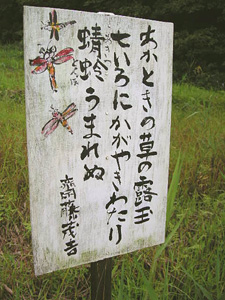 あかときの草の露玉
七いろにかがやきわたり
蜻蛉うまれぬ
とんぼ
齋藤茂吉